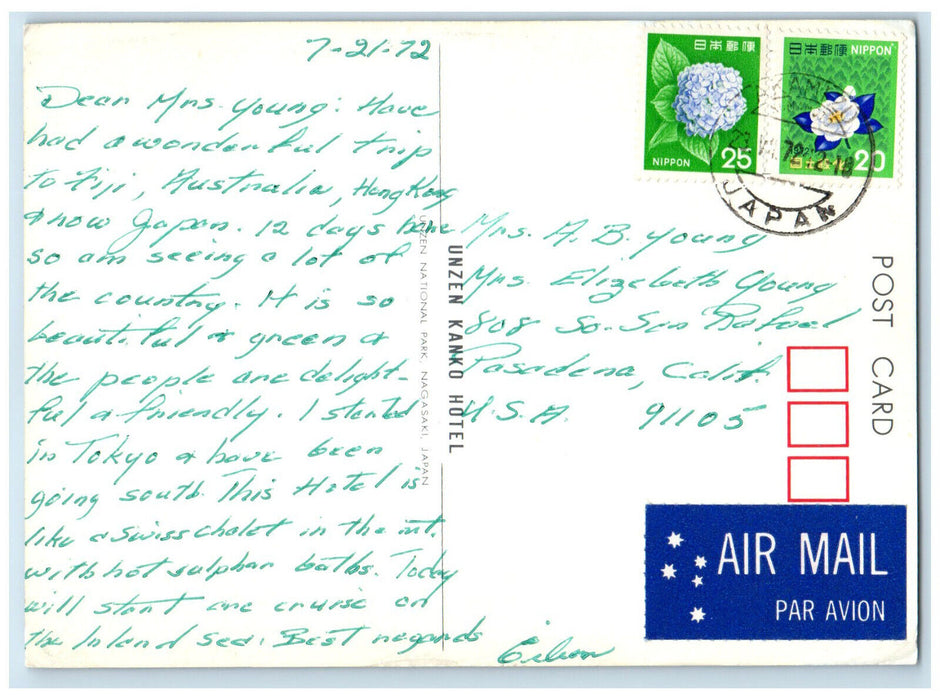 7-21-72
Dear Mrs. Young: Have
had a wonderful trip
to Fiji, Australia, Hong Kong
& now Japan. 12 days here
so am seeing a lot of
the country. It is so
beautiful & green &
the people are delight-
ful & friendly. I started
in Tokyo & have been
going south. This Hotel is
like a Swiss chalet in the mt.
with hot sulphur baths. Today
will start one cruise on
the Inland Sea. Best regards
UNZEN KANKO HOTEL
UNZEN NATIONAL PARK, NAGASAKI, JAPAN
日本郵便
NIPPON 25
日本郵便 NIPPON
20
JAPAN
Mrs. A. B. Young
Mrs. Elizabeth Young
808 So. San Rafael
Pasadena, Calif.
U.S.A. 91105
POST CARD
AIR MAIL
PAR AVION